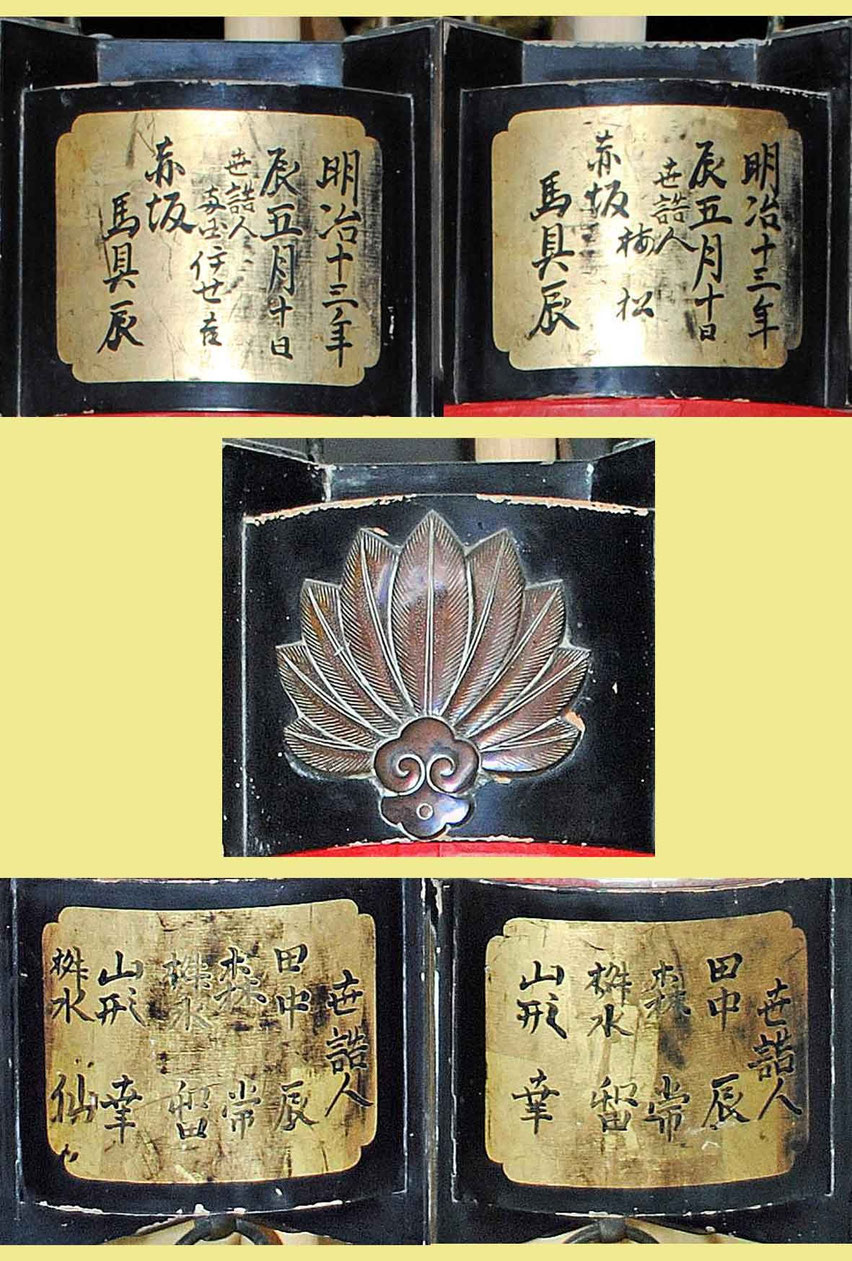 明治十三年
辰五月十日
世話人
赤坂
馬具辰
明治十三年
辰五月十日
世話人
梅松
赤坂
馬具辰
世話人
田中 辰
森 常
桝水 留
山形 幸
桝水 仙
世話人
田中 辰
森 常
桝水 留
山形 幸